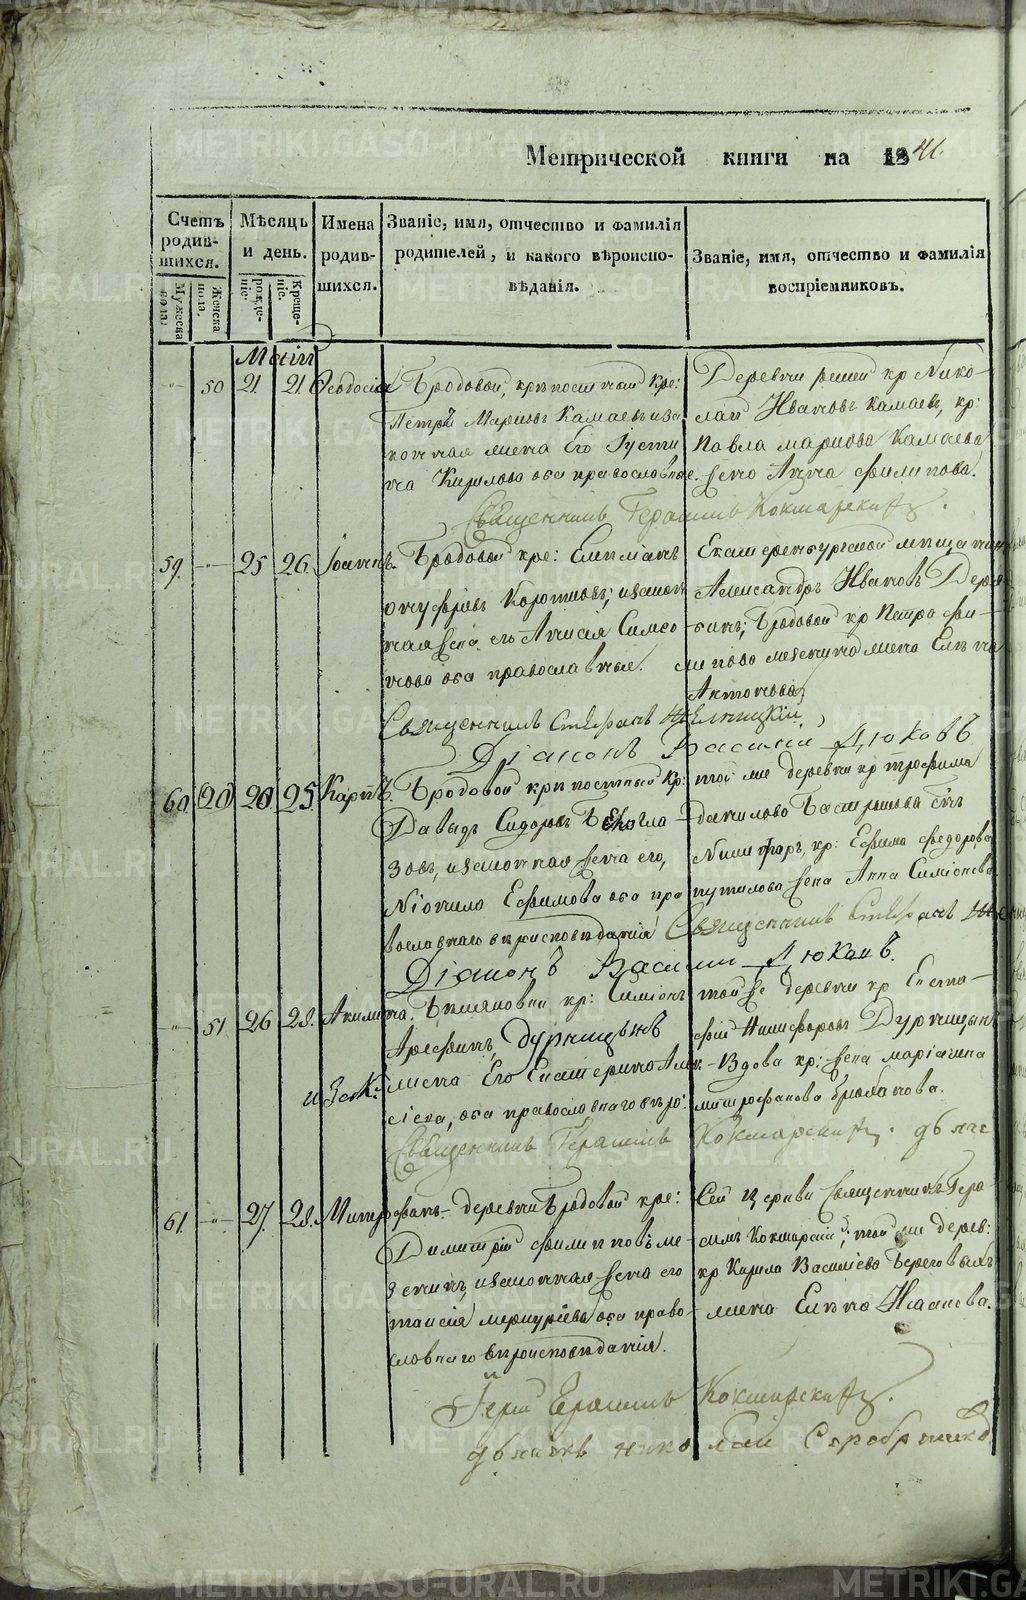 Метрической книги на 1841.
Счетъ родив-шихся.
Мужеска пола.
Женска пола.
Мѣсяцъ и день.
рожде-ніе.
Креще-ніе.
Имена родив-шихся.
Званіе, имя, отчество и фамилія родителей, и какого вѣроиспо-вѣданія.
Званіе, имя, отчество и фамилія воспріемниковъ.
Маій
50 21. 21. Ѳеодосія
Бродовой, крѣпостной кре:
Петръ Марковъ Камаевъ и за
конная жена его Іусти
на Кирилова оба православные.
Деревни кр Нико-
лай Ивановъ Камаевъ, кр:
Павла Маркова Камаева
жена Анна Филипова.
Священникъ Герасимъ Кокшарскій.
59. 25 26. Іоаннъ.
Бродовой кре:
Онуфріевъ Коротковъ; и закон
ная жена его Анисія Симео
нова оба православные.
Екатеринбургской мѣщанинъ
Александръ Ивановъ
Бродовой кр Петра Фи-
липова Мезенина жена Елена
Антонова.
Священникъ Стефанъ
Діаконъ Василій Дюковъ
60. 20. 25. Карпъ.
Бродовой крѣпостный кр:
Давыдъ Сидоровъ Бѣлогла-
зовъ, и законная жена его,
Неонила Ефимова оба пра
вославнаго вѣроисповѣданія
той же деревни кр Трофима
Данилова сынъ
Никифоръ, кр: Ефима Федорова
Путилова жена Анна Симіонова
Священникъ Стефанъ
Діаконъ Василій Дюковъ.
51 26 28. Акилина.
кр: Симіонъ
Арефинъ Дурницынъ
и Зак: жена Его Екатерина Алек-
сіева, оба православнаго вѣро:
той же деревни кр Евста-
фій Никифоровъ Дурницынъ
Вдова кр: жена Маріамна
Митрофанова
Священникъ Герасимъ Кокшарскій.
61. 27. 28. Митрофанъ.
деревни Бродовой кре:
Димитрій Филиповъ Ме-
зенинъ, и законная жена его
Таисія Меркуріева оба право-
славнаго вѣроисповѣданія.
Сей Церкви Священникъ Гера-
симъ Кокшарскій, той же дерев:
кр Кирила Василіева Береговыхъ
жена Елена Исакова.
Іерей Герасимъ Кокшарскій.
дьячекъ Николай
METRIKI.GASO-URAL.RU